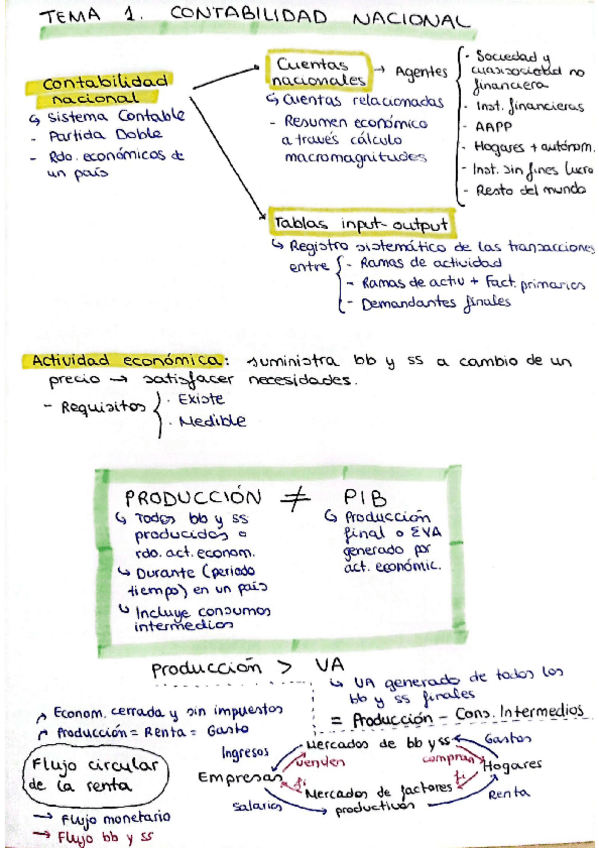 TEMA 1. CONTABILIDAD NACIONAL
Contabilidad nacional
↳ Sistema Contable
- Partida Doble
- Rdo. económicos de un país
Cuentas nacionales → Agentes
↳ Cuentas relacionadas
- Resumen económico
a través cálculo
macromagnitudes
- Sociedad y
cuasisociedad no
financiera
- Inst. financieras
- AAPP
- Hogares + autónom.
- Inst. sin fines lucro
- Resto del mundo
Tablas input-output
↳ Registro sistemático de las transacciones
entre - Ramas de actividad
- Ramas de activ + Fact. primarios
- Demandantes finales
Actividad económica: suministra bb y ss a cambio de un
precio → satisfacer necesidades.
- Requisitos · Existe
· Medible
PRODUCCIÓN ≠ PIB
↳ Todos bb y ss
producidos o
rdo. act. econom.
↳ Durante (periodo
tiempo) en un país
↳ Incluye consumos
intermedios
↳ Producción
final o ΣVA
generado por
act. económic.
Producción > VA
↳ VA generado de todos los
bb y ss finales
= Producción - Cons. Intermedios
Econom. cerrada y sin impuestos
Producción = Renta = Gasto
Flujo circular
de la renta
→ Flujo monetario
→ Flujo bb y ss
Ingresos
Mercados de bb y ss
Gastos
venden
compran
Empresas
Hogares
Mercados de factores
productivos
Salarios
Renta